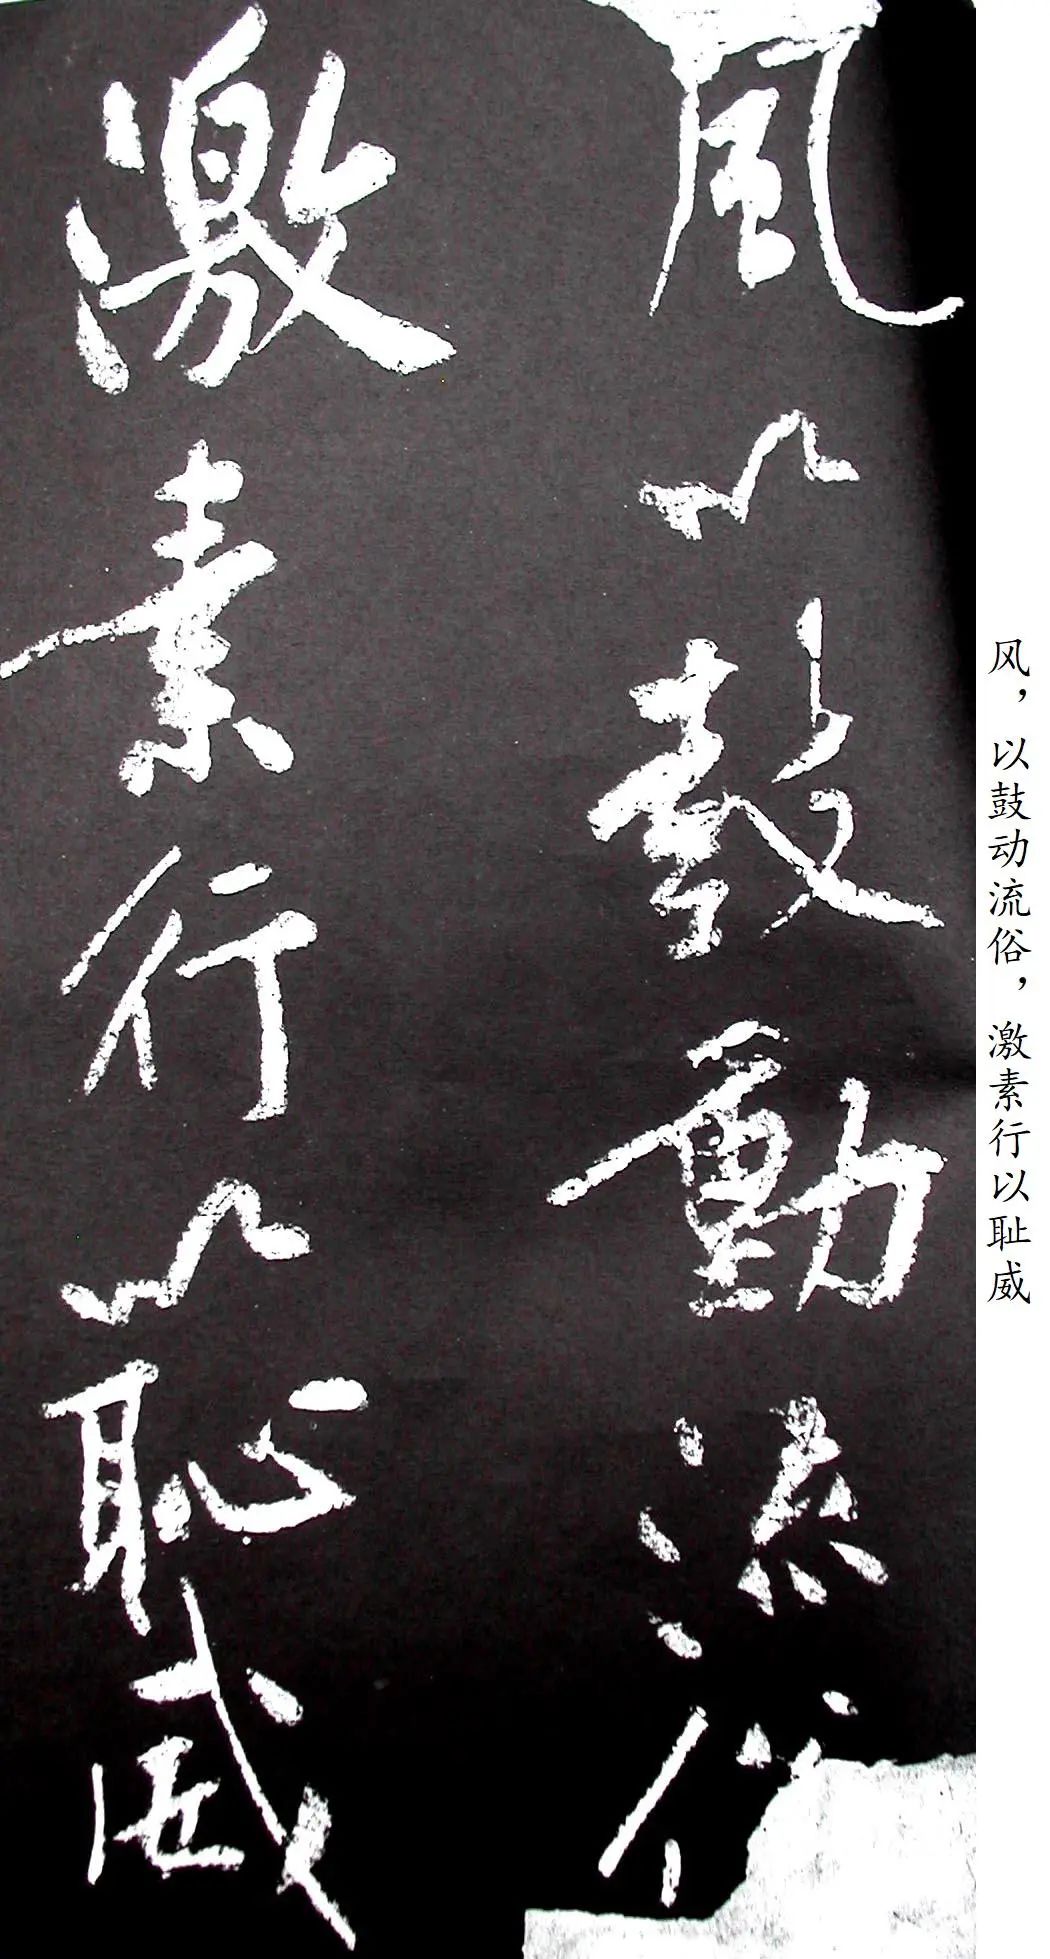 風以鼓動流俗
激素行以恥威
风，以鼓动流俗，激素行以耻威